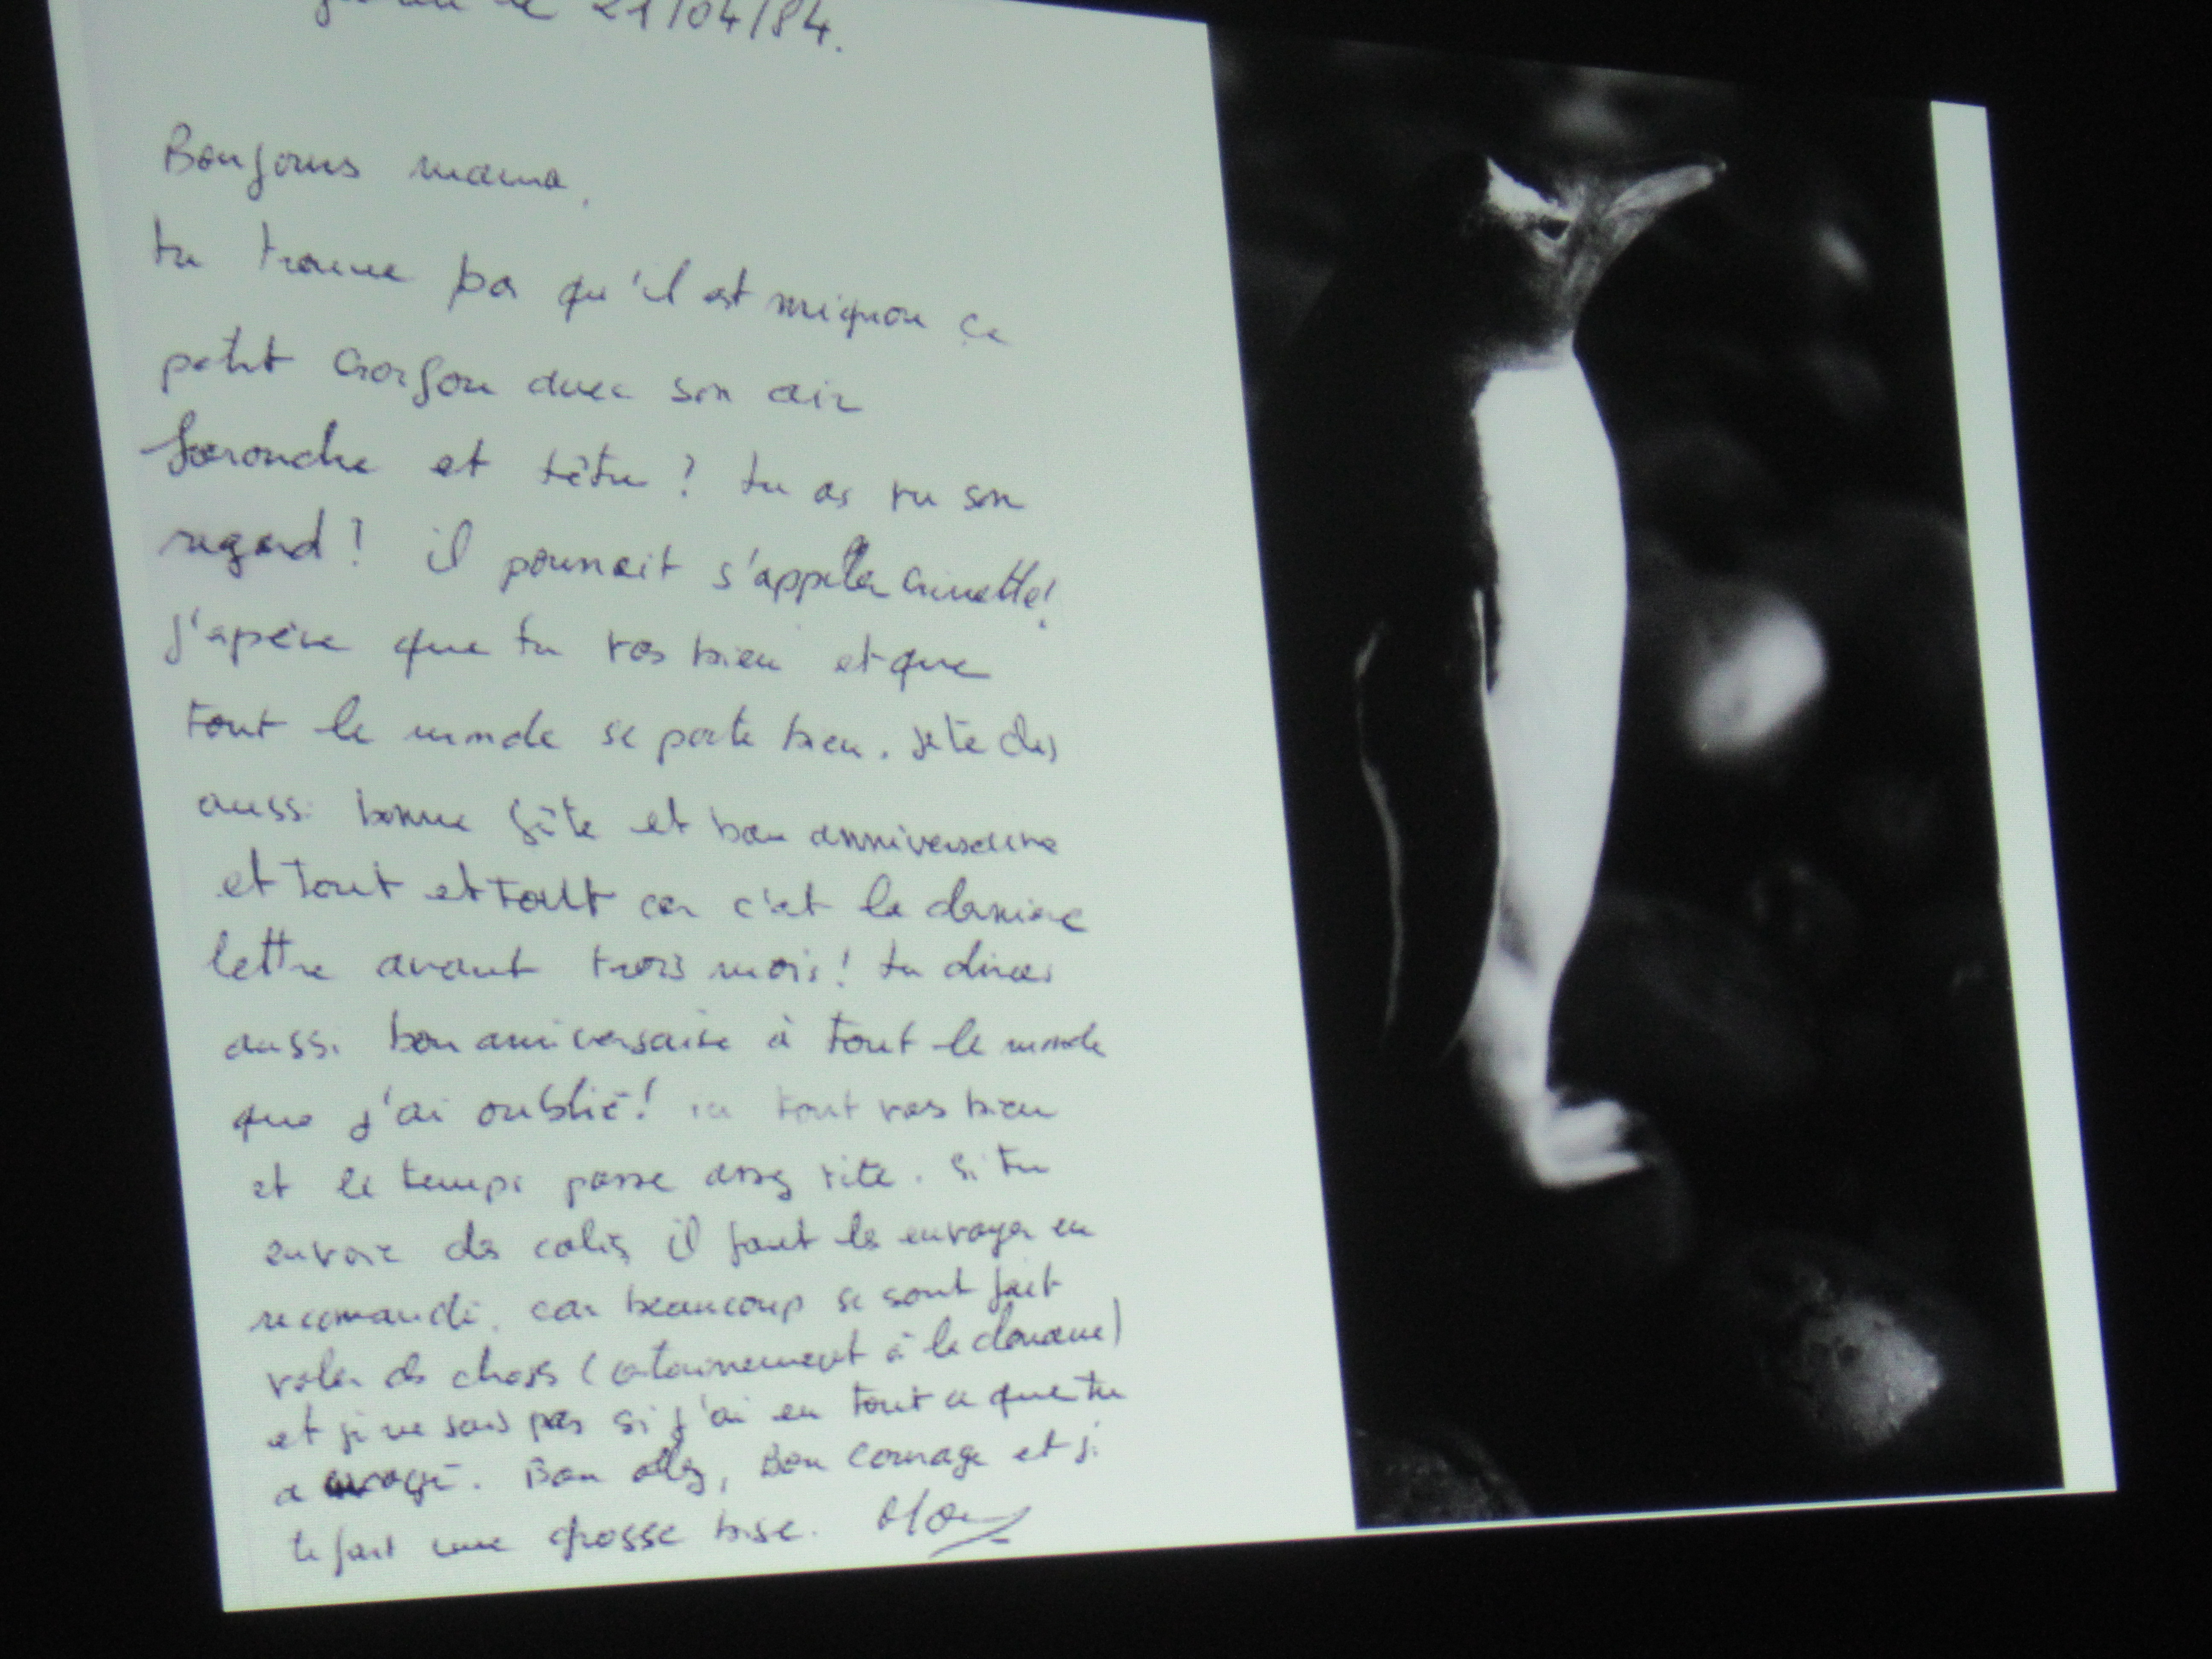 le 21/04/84.
Bonjour mama,
tu trouve pas qu'il est mignon ce
petit garçon avec son air
farouche et têtu ? tu as vu son
regard ! il pourrait s'appeler
j'espère que tu vas bien et que
tout le monde se porte bien. je te dis
aussi bonne fête et bon anniversaire
et tout et tout car c'est la dernière
lettre avant trois mois ! tu diras
aussi bon anniversaire à tout le monde
que j'ai oublié ! ici tout vas bien
et le temps passe assez vite. si tu
envoie des colis il faut les envoyer en
recomandé. car beaucoup se sont fait
voler des choses (certainement à la douane)
et je ne sais pas si j'ai eu tout ce que tu
a envoyé. Bon allez, Bon courage et je
te fait une grosse bise.